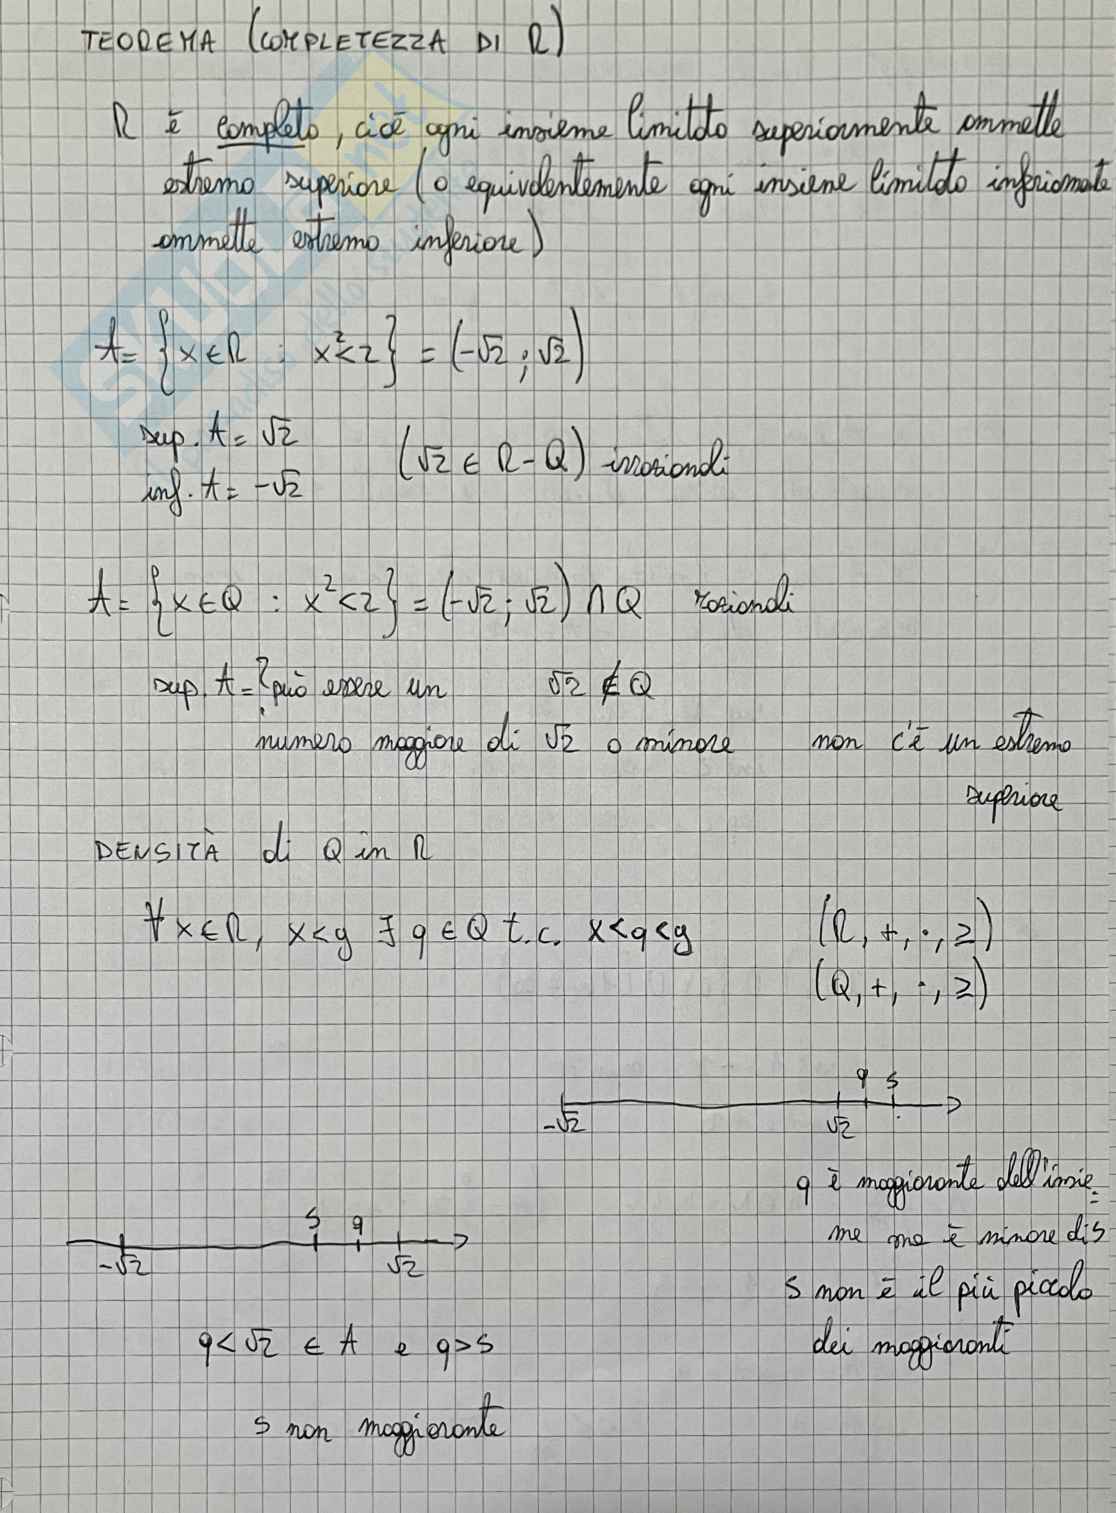 TEOREMA (COMPLETEZZA DI R)
R è completo, cioè ogni insieme limitato superiormente ammette
estremo superiore (o equivalentemente ogni insieme limitato inferiormente
ammette estremo inferiore)
A= {x ∈ R : x²<2} = (-√2 ; √2)
sup. A = √2
(√2 ∈ R - Q) irrazionali
inf. A = -√2
A = {x ∈ Q : x²<2} = (-√2 ; √2) ∩ Q razionali
sup. A = ? può essere un √2 ∉ Q
numero maggiore di √2 o minore non c'è un estremo
superiore
DENSITÀ di Q in R
∀ x ∈ R, x<y ∃ q ∈ Q t.c. x<q<y (R, +, ·, ≥)
(Q, +, ·, ≥)
q s
-√2 √2
q è maggiorante dell'insie=
me ma è minore di s
s non è il più piccolo
dei maggioranti
s q
-√2 √2
q<√2 ∈ A e q>s
s non maggiorante